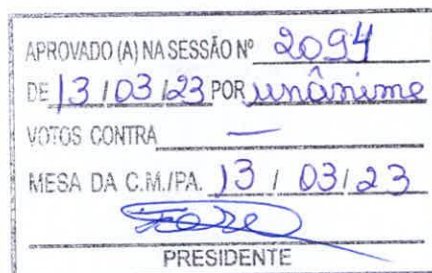 APROVADO (A) NA SESSÃO Nº 2094
DE 13/03/23 POR unânime
VOTOS CONTRA —
MESA DA C.M./PA. 13 / 03/23
PRESIDENTE